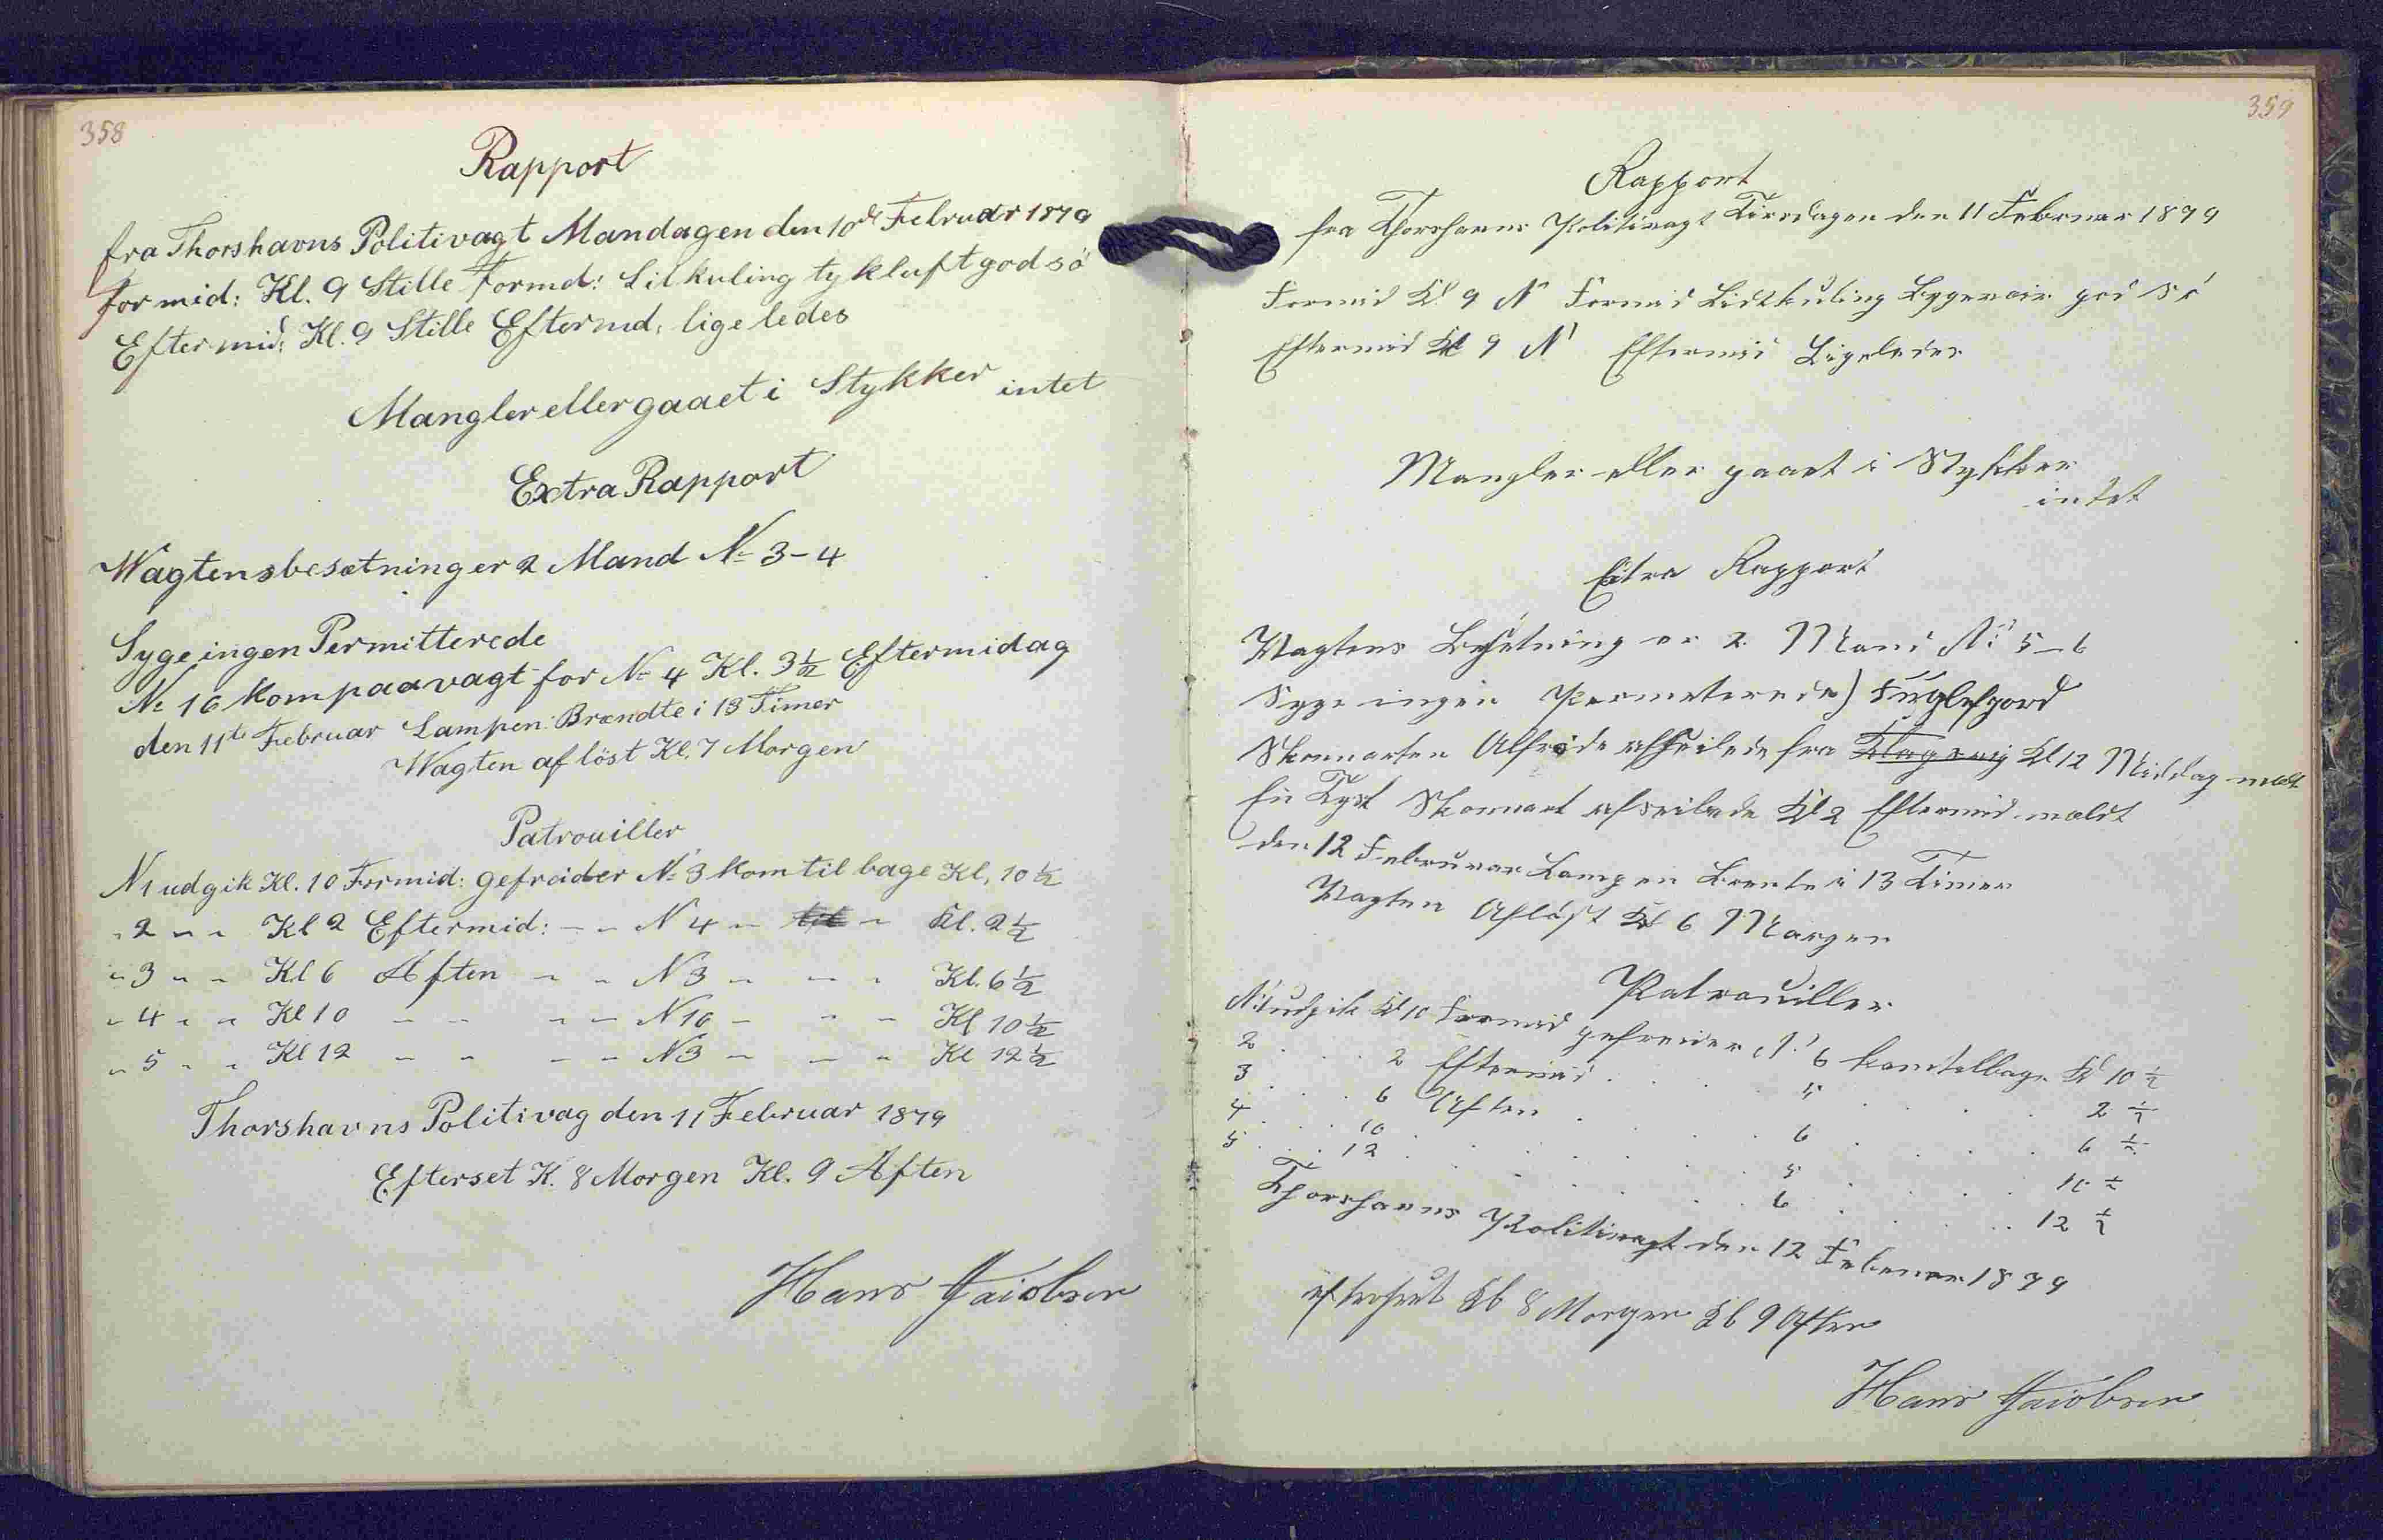 358
Rapport
fra Thorshavns Politivagt Mandagen den 10de Februar 1879
for mid: Kl. 9 Stille Formd: Lil kuling tykluft god sö
Efter mid: Kl. 9 Stille Eftermd: lige ledes
Mangler eller gaaet i Stykker intet
Extra Rapport
Wagtens besætning er 2 Mand No 3-4
Syge ingen Permitterede
No 16 kom paa vagt for No 4 Kl. 3½ Eftermidag
den 11te Februar Lampen: Brændte i 13 Timer
Wagten aflöst Kl. 7 Morgen
Patrouiller
N 1 udgik Kl. 10 Formid: gefreider No 3 kom til bage Kl. 10½
" 2 " " Kl 2 Eftermid: " " N 4 " " Kl. 2½
" 3 " " Kl 6 Aften " " N 3 " " " Kl. 6½
" 4 " " Kl 10 " " " " N 16 " " " Kl 10½
" 5 " " Kl 12 " " " " N 3 " " " Kl 12½
Thorshavns Politivag den 11 Februar 1879
Efterset K. 8 Morgen Kl. 9 Aften
Hans Jacobsen
359
Rapport
fra Thorshavns Politivagt Tirsdagen den 11 Februar 1879
Formid Kl 9 N Formid Lidtkuling Bygeveir god Sö
Eftermid Kl 9 N Eftermid Ligeledes
Mangler eller gaaet i Stykker
intet
Extra Rapport
Vagtens Besætning er 2 Mand No 5-6
Syge ingen Permeterede) Fuglefjord
Skonnarten Alfride afseilede fra Klagsvig Kl 12 Middag meldt
En Tysk Skonnart afseilede Kl 2 Eftermid. mældt
den 12 Februar Lampen Brente i 13 Timer
Vagten Aflöst Kl 6 Morgen
Patrouiller
N 1 udgik Kl 10 Formid gefreider No 6 kom telbage Kl 10½
2 . . . 2 Eftermid . . . 5 . . . 2½
3 . . . 6 Aften . . . 6 . . . 6½
4 . . . 10 . . . 5 . . . 10½
5 . . . 12 . . . 6 . . . 12½
Thorshavns Politivagt den 12 Februar 1879
efterseet Kl 8 Morgen Kl 9 Aften
Hans Jacobsen